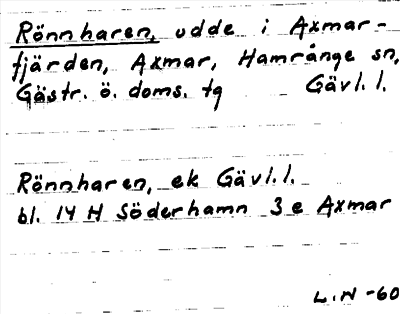 Rönnharen, udde i Axmar-
fjärden, Axmar, Hamrånge sn,
Gästr. ö. doms. tg Gävl. l.
Rönnharen, ek Gävl. l.
bl. 14 H Söderhamn 3 e Axmar
L.N -60